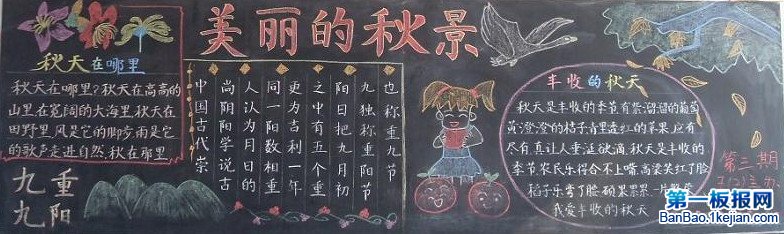 美丽的秋景
秋天在哪里
秋天在哪里?秋天在高高的
山里,在宽阔的大海里,秋天在
田野里,风是它的脚步,雨是它
的歌声,走进自然,秋在那里
九重
九阳
中国古代崇
尚阴阳学说古
人认为月日的
同一阳数相重
更为吉利一年
之中有五个重
阳日把九月初
九独称重阳节
也称重九节
丰收的秋天
秋天是丰收的季节有紫溜溜的葡萄
黄澄澄的桔子青里透红的苹果应有
尽有真让人垂涎欲滴秋天是丰收的
季节农民乐得合不上嘴高粱笑红了脸
稻子乐弯了腰硕果累累一片
我爱丰收的秋天
第三期
第一板报网
BanBao.1kejian.com